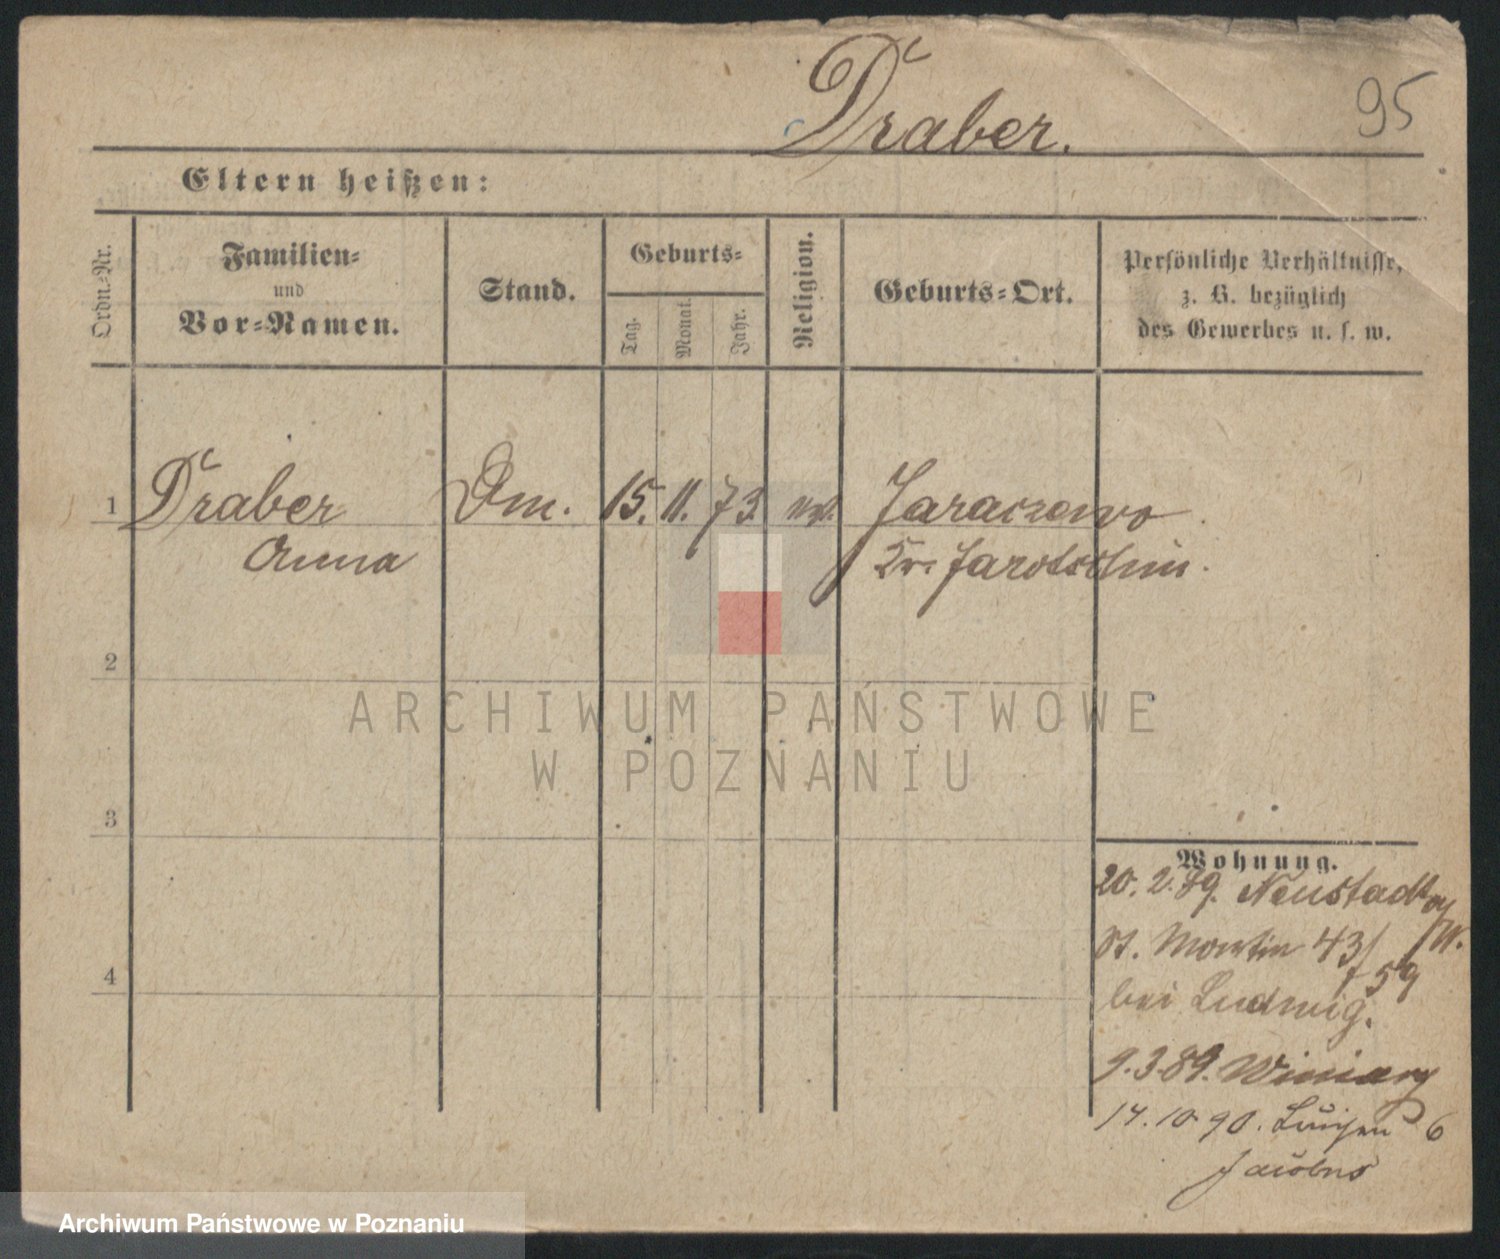 Draber.
95
Eltern heißen:
Ordn.-Nr.
Familien-
und
Vor-Namen.
Stand.
Geburts-
Tag.
Monat.
Jahr.
Religion.
Geburts-Ort.
Persönliche Verhältnisse,
z. B. bezüglich
des Gewerbes u. s. w.
1 Draber Dm. 15. 11. 73 Jaraczewo
Anna Kr. Jarotschin.
2
3
4
Wohnung.
20. 2. 89. Neustadt a/W.
St. Martin 43/59
bei Ludwig.
9.3.89. Winiary
14.10.90. Luisen 6
Jacobus
ARCHIWUM PAŃSTWOWE
W POZNANIU
Archiwum Państwowe w Poznaniu